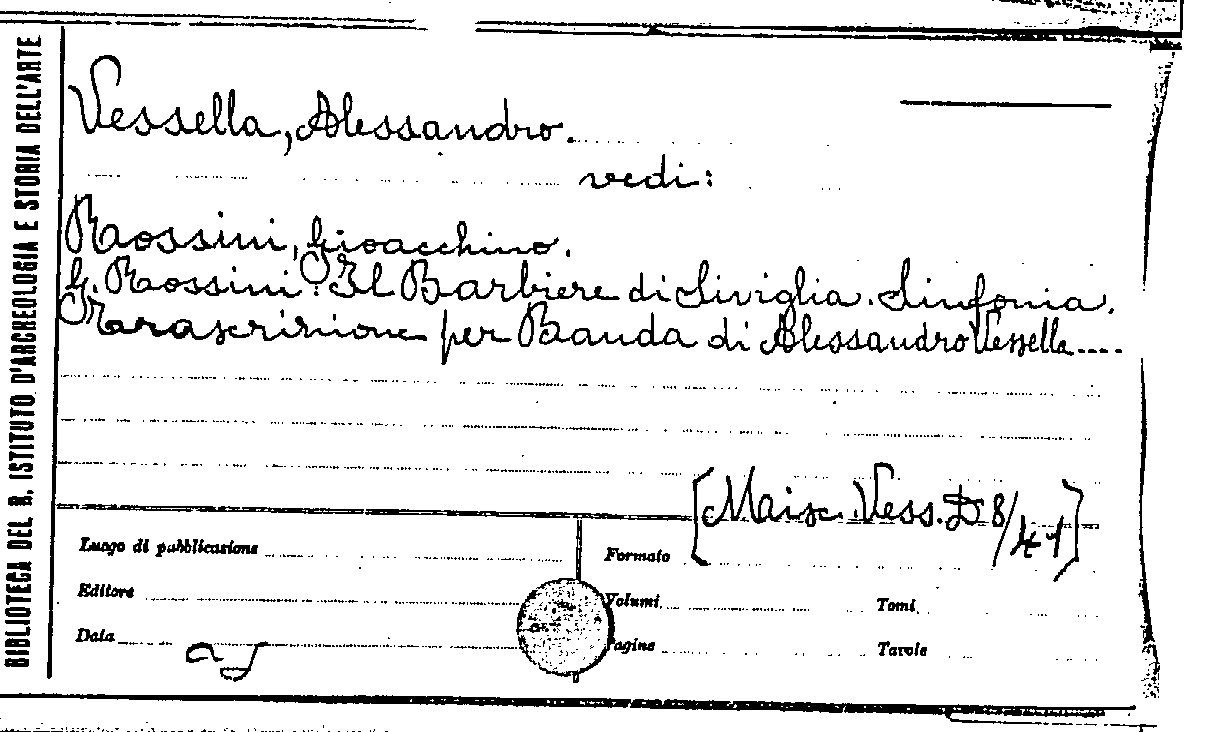 BIBLIOTECA DEL R. ISTITUTO D'ARCHEOLOGIA E STORIA DELL'ARTE
Vessella, Alessandro.
vedi:
Rossini, Gioacchino.
G. Rossini. Il Barbiere di Siviglia. Sinfonia.
Trascrizione per Banda di Alessandro Vessella....
[Misc. Vess. D 8/41]
Luogo di pubblicazione
Formato
Editore
Volumi
Tomi
Data
Pagine
Tavole